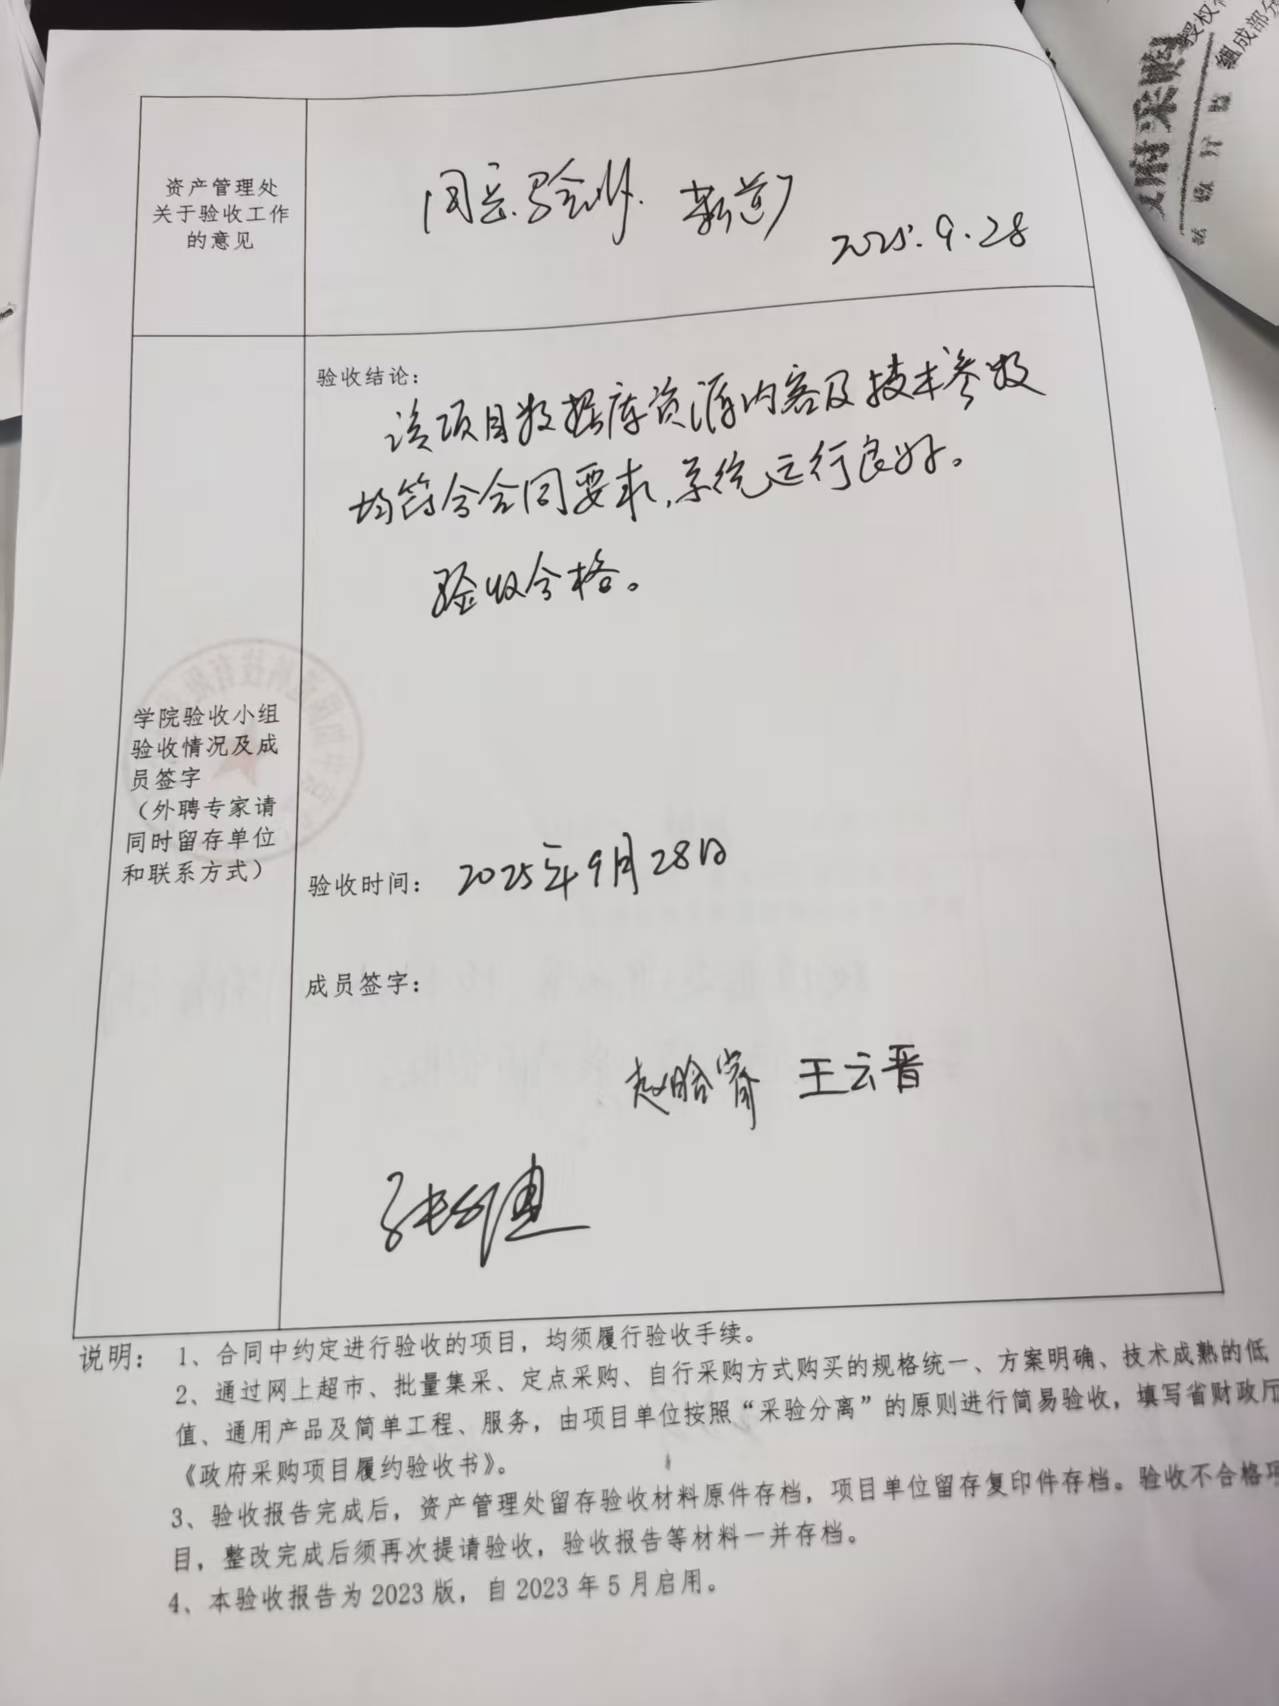 资产管理处
关于验收工作
的意见
同意验收.
2025.9.28
验收结论：
该项目数据库资源内容及技术参数
均符合合同要求,系统运行良好。
验收合格。
学院验收小组
验收情况及成
员签字
（外聘专家请
同时留存单位
和联系方式）
验收时间： 2025年9月28日
成员签字：
王云晋
说明： 1、合同中约定进行验收的项目，均须履行验收手续。
2、通过网上超市、批量集采、定点采购、自行采购方式购买的规格统一、方案明确、技术成熟的低
值、通用产品及简单工程、服务，由项目单位按照“采验分离”的原则进行简易验收，填写省财政厅
《政府采购项目履约验收书》。
3、验收报告完成后，资产管理处留存验收材料原件存档，项目单位留存复印件存档。验收不合格项
目，整改完成后须再次提请验收，验收报告等材料一并存档。
4、本验收报告为 2023 版，自 2023 年 5 月启用。
府采购
授权
组成部分